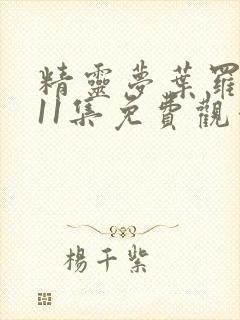 精靈夢葉羅
11集免費觀
楊千紫